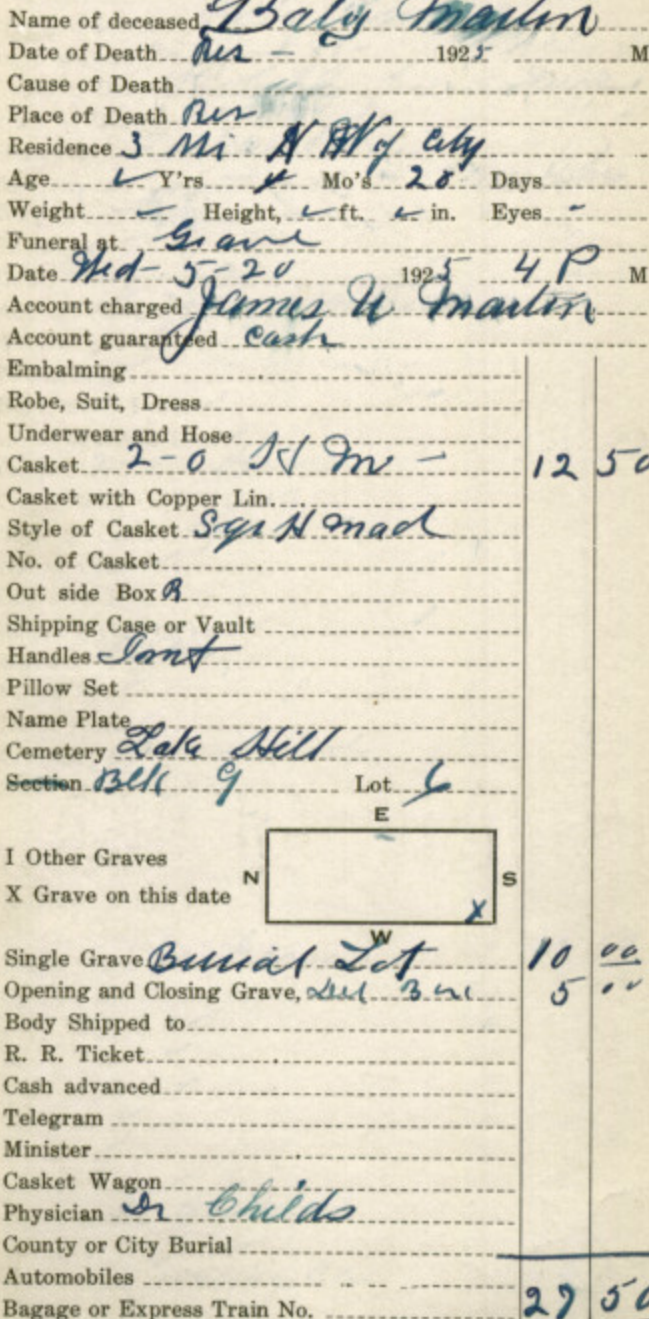 Name of deceased Baby Martin
Date of Death Res - 1925 M
Cause of Death
Place of Death Res
Residence 3 Mi N W of City
Age Y'rs Mo's 20 Days
Weight Height, ft. in. Eyes -
Funeral at Grave
Date Wed- 5-20 1925 4 P M
Account charged James W Martin
Account guaranteed Cash
Embalming
Robe, Suit, Dress
Underwear and Hose
Casket 2-0 - 12 50
Casket with Copper Lin.
Style of Casket Sqr H mad
No. of Casket
Out side Box R
Shipping Case or Vault
Handles
Pillow Set
Name Plate
Cemetery Lake Hill
Section Blk 9 Lot 6
E
I Other Graves
N S
X Grave on this date
X
W
Single Grave Burial Lot 10 00
Opening and Closing Grave, 5 00
Body Shipped to
R. R. Ticket
Cash advanced
Telegram
Minister
Casket Wagon
Physician Dr Childs
County or City Burial
Automobiles
Bagage or Express Train No. 27 50